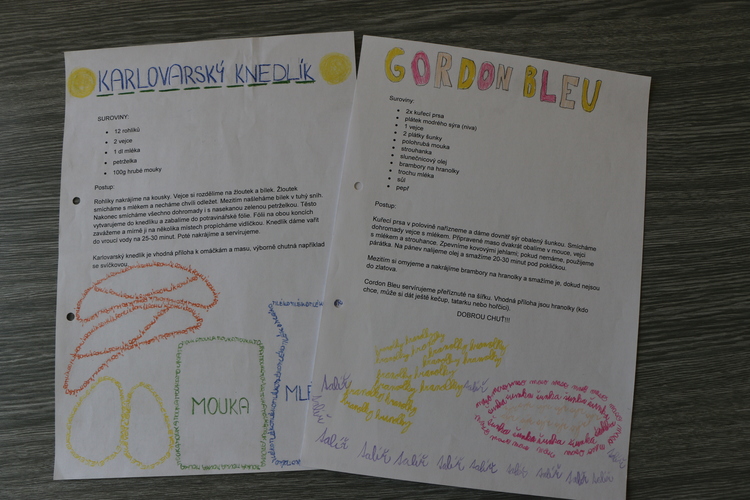 KARLOVARSKÝ KNEDLÍK
SUROVINY:
12 rohlíků
2 vejce
1 dl mléka
petrželka
100g hrubé mouky
Postup:
Rohlíky nakrájíme na kousky. Vejce si rozdělíme na žloutek a bílek. Žloutek
smícháme s mlékem a necháme chvíli odležet. Mezitím našleháme bílek v tuhý sníh.
Nakonec smícháme všechno dohromady i s nasekanou zelenou petrželkou. Těsto
vytvarujeme do knedlíku a zabalíme do potravinářské fólie. Fólii na obou koncích
zavážeme a mírně ji na několika místech propícháme vidličkou. Knedlík dáme vařit
do vroucí vody na 25-30 minut. Poté nakrájíme a servírujeme.
Karlovarský knedlík je vhodná příloha k omáčkám a masu, výborně chutná například
se svíčkovou.
MOUKA
MLÉ
GORDON BLEU
Suroviny:
2x kuřecí prsa
plátek modrého sýra (niva)
1 vejce
2 plátky šunky
polohrubá mouka
strouhanka
slunečnicový olej
brambory na hranolky
trochu mléka
sůl
pepř
Postup:
Kuřecí prsa v polovině nařízneme a dáme dovnitř sýr obalený šunkou. Smícháme
dohromady vejce s mlékem. Připravené maso dvakrát obalíme v mouce, vejci
s mlékem a strouhance. Zpevníme kovovými jehlami; pokud nemáme, použijeme
párátka. Na pánev nalijeme olej a smažíme 20-30 minut pod pokličkou.
Mezitím si omyjeme a nakrájíme brambory na hranolky a smažíme je, dokud nejsou
do zlatova.
Cordon Bleu servírujeme přeříznuté na šířku. Vhodná příloha jsou hranolky (kdo
chce, může si dát ještě kečup, tatarku nebo hořčici).
DOBROU CHUŤ!!!
hranolky hranolky
hranolky hranolky hranolky
hranolky hranolky
hranolky hranolky
hranolky hranolky
hranolky hranolky
talíř talíř
talíř talíř talíř talíř talíř talíř talíř talíř
maso maso maso maso
šunka šunka šunka šunka
šunka šunka šunka šunka
maso maso maso maso